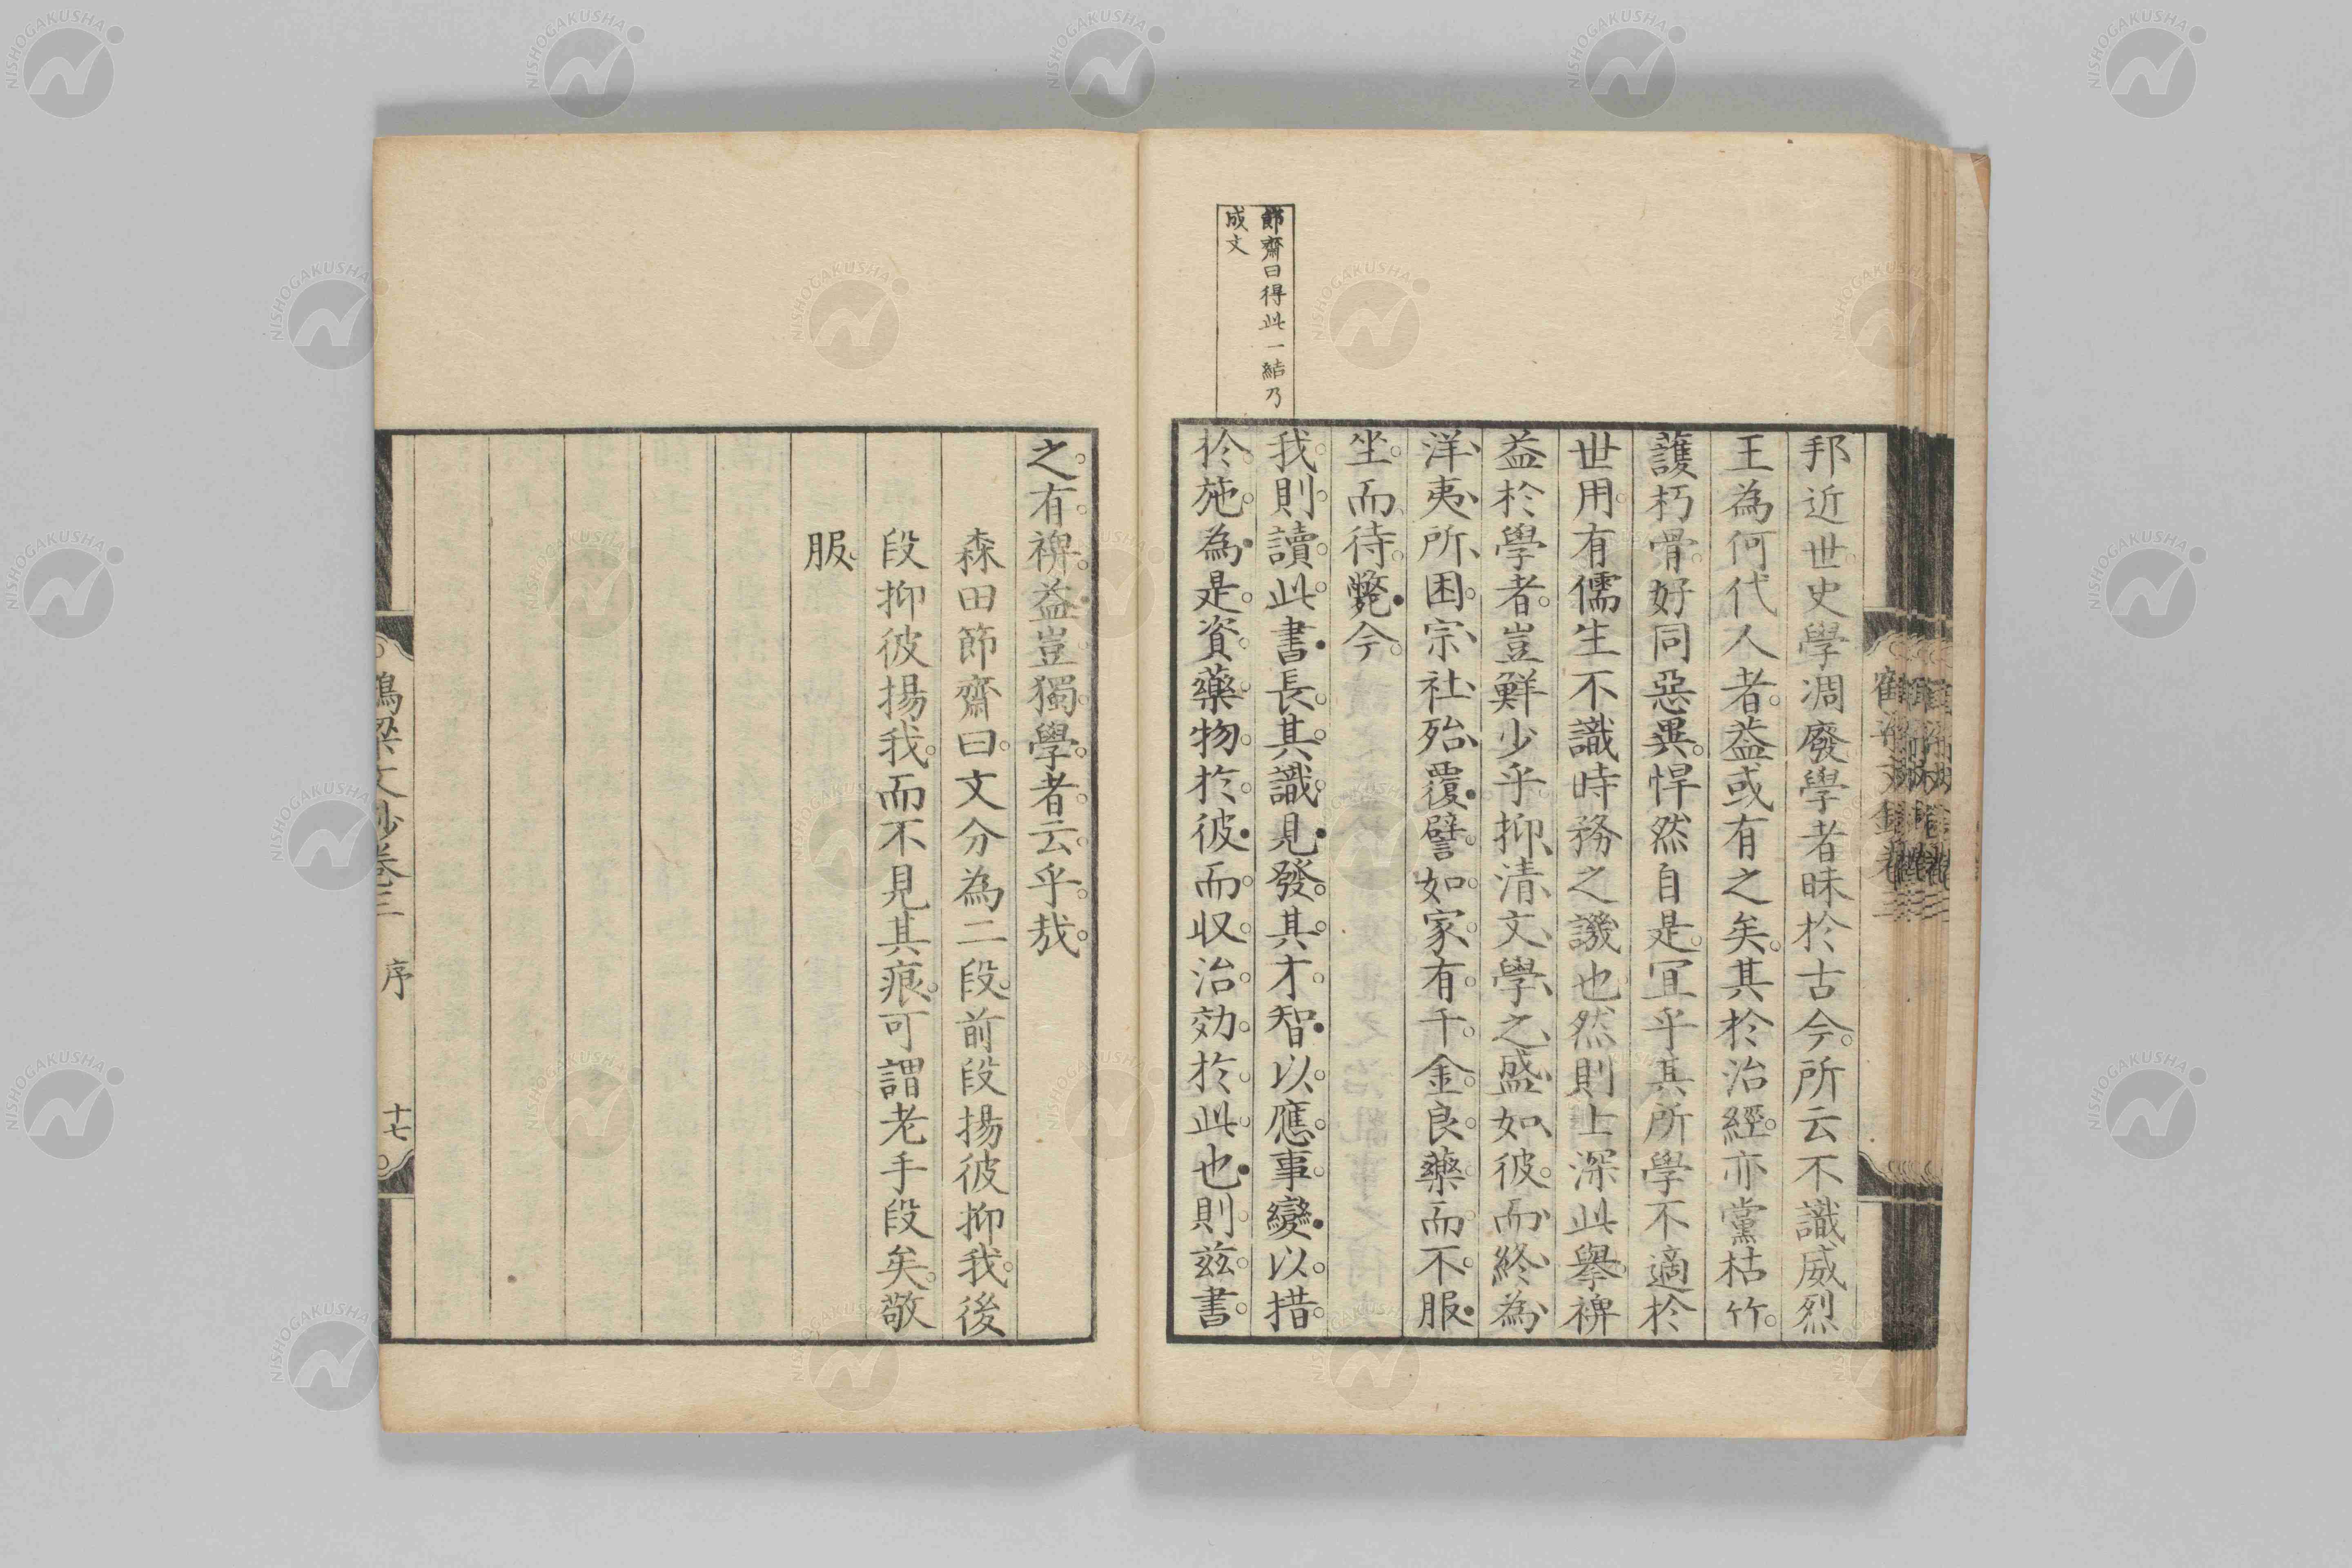 節齋曰得此一結乃
成文
邦近世史學凋廢學者昧於古今所云不識威烈
王為何代人者益或有之矣其於治經亦黨枯竹
護朽骨好同惡異悍然自是冝乎其所學不適於
世用有儒生不識時務之譏也然則上深此擧裨
益於學者豈鮮少乎抑清文學之盛如彼而終為
洋夷所困宗社殆覆譬如家有千金良藥而不服
坐而待斃今
我則讀此書長其識見發其才智以應事變以措
於施為是資藥物於彼而収治効於此也則玆書
之有裨益豈獨學者云乎哉
森田節齋曰文分為二段前段揚彼抑我後
段抑彼揚我而不見其痕可謂老手段矣敬
服
鶴梁文鈔卷三 序 十七
NISHOGAKUSHA